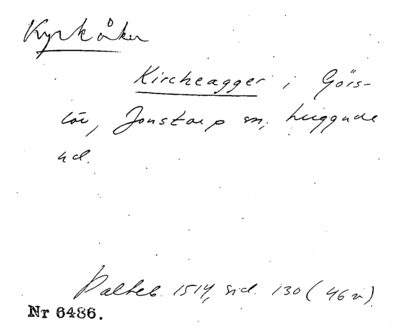 Kyrkåker
Kircheagger i Görs-
löv, Jonstorp sn, Luggude
hd.
Palteb. 1514, sid. 130 (46 v).
Nr 6486.